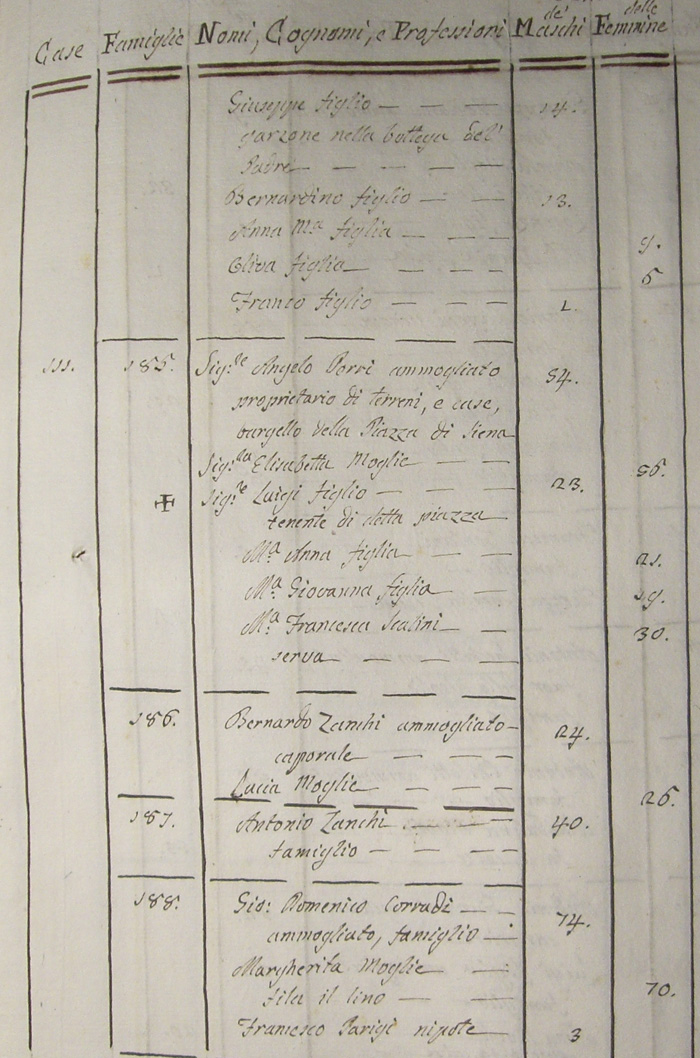 Case Famiglie Nomi, Cognomi, e Professioni de' Maschi delle Femmine
Giuseppe figlio — — — 14.
garzone nella bottega del'
Padre — — — —
Bernardino figlio — — 13.
Anna M.a figlia — — — 9.
Oliva figlia — — — — 5
Franco figlio — — — 1.
111. 185. Sig.re Angelo Porri ammogliato 54.
proprietario di terreni, e case,
bargello della Piazza di Siena
Sig.ra Elisabetta Moglie — — 56.
Sig.re Luigi figlio — — — 23.
tenente di detta piazza
M.a Anna figlia — — — 21.
M.a Giovanna figlia — — 19.
M.a Francesca Scalini — — 30.
serva — — — —
186. Bernardo Zanchi ammogliato — 24.
caporale — — — —
Lucia Moglie — — — 26.
187. Antonio Zanchi — — 40.
famiglio — — — —
188. Gio: Domenico Corradi — — 74.
ammogliato, famiglio —
Margherita Moglie — —
fila il lino — — — 70.
Francesco Parigi nipote — 3